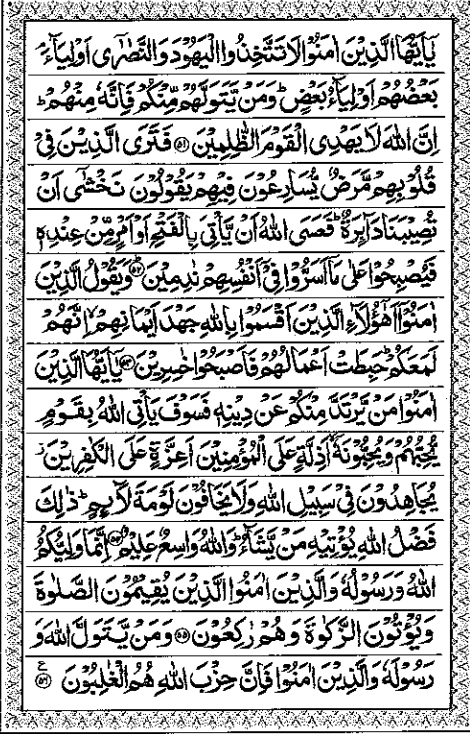 يٰۤاَيُّهَا الَّذِيۡنَ اٰمَنُوۡا لَا تَتَّخِذُوا الۡيَهُوۡدَ وَالنَّصٰرٰۤى اَوۡلِيَآءَ ۘ
بَعۡضُهُمۡ اَوۡلِيَآءُ بَعۡضٍؕ وَمَنۡ يَّتَوَلَّهُمۡ مِّنۡكُمۡ فَاِنَّهٗ مِنۡهُمۡؕ
اِنَّ اللّٰهَ لَا يَهۡدِى الۡقَوۡمَ الظّٰلِمِيۡنَ ﴿۵۱﴾ فَتَرَى الَّذِيۡنَ فِىۡ
قُلُوۡبِهِمۡ مَّرَضٌ يُّسَارِعُوۡنَ فِيۡهِمۡ يَقُوۡلُوۡنَ نَخۡشٰٓى اَنۡ
تُصِيۡبَنَا دَآٮِٕرَةٌؕ فَعَسَى اللّٰهُ اَنۡ يَّاۡتِىَ بِالۡفَتۡحِ اَوۡ اَمۡرٍ مِّنۡ عِنۡدِهٖ
فَيُصۡبِحُوۡا عَلٰى مَاۤ اَسَرُّوۡا فِىۡۤ اَنۡفُسِهِمۡ نٰدِمِيۡنَؕ ﴿۵۲﴾ وَيَقُوۡلُ الَّذِيۡنَ
اٰمَنُوۡۤا اَهٰٓؤُلَآءِ الَّذِيۡنَ اَقۡسَمُوۡا بِاللّٰهِ جَهۡدَ اَيۡمَانِهِمۡۙ اِنَّهُمۡ
لَمَعَكُمۡؕ حَبِطَتۡ اَعۡمَالُهُمۡ فَاَصۡبَحُوۡا خٰسِرِيۡنَ ﴿۵۳﴾ يٰۤاَيُّهَا الَّذِيۡنَ
اٰمَنُوۡا مَنۡ يَّرۡتَدَّ مِنۡكُمۡ عَنۡ دِيۡنِهٖ فَسَوۡفَ يَاۡتِى اللّٰهُ بِقَوۡمٍ
يُّحِبُّهُمۡ وَيُحِبُّوۡنَهٗۤۙ اَذِلَّةٍ عَلَى الۡمُؤۡمِنِيۡنَ اَعِزَّةٍ عَلَى الۡكٰفِرِيۡنَز
يُجَاهِدُوۡنَ فِىۡ سَبِيۡلِ اللّٰهِ وَلَا يَخَافُوۡنَ لَوۡمَةَ لَاۤٮِٕمٍؕ ذٰلِكَ
فَضۡلُ اللّٰهِ يُؤۡتِيۡهِ مَنۡ يَّشَآءُؕ وَاللّٰهُ وَاسِعٌ عَلِيۡمٌ ﴿۵۴﴾ اِنَّمَا وَلِيُّكُمُ
اللّٰهُ وَرَسُوۡلُهٗ وَالَّذِيۡنَ اٰمَنُوا الَّذِيۡنَ يُقِيۡمُوۡنَ الصَّلٰوةَ
وَيُؤۡتُوۡنَ الزَّكٰوةَ وَهُمۡ رٰكِعُوۡنَ ﴿۵۵﴾ وَمَنۡ يَّتَوَلَّ اللّٰهَ وَ
رَسُوۡلَهٗ وَالَّذِيۡنَ اٰمَنُوۡا فَاِنَّ حِزۡبَ اللّٰهِ هُمُ الۡغٰلِبُوۡنَ ﴿۵۶﴾ ع